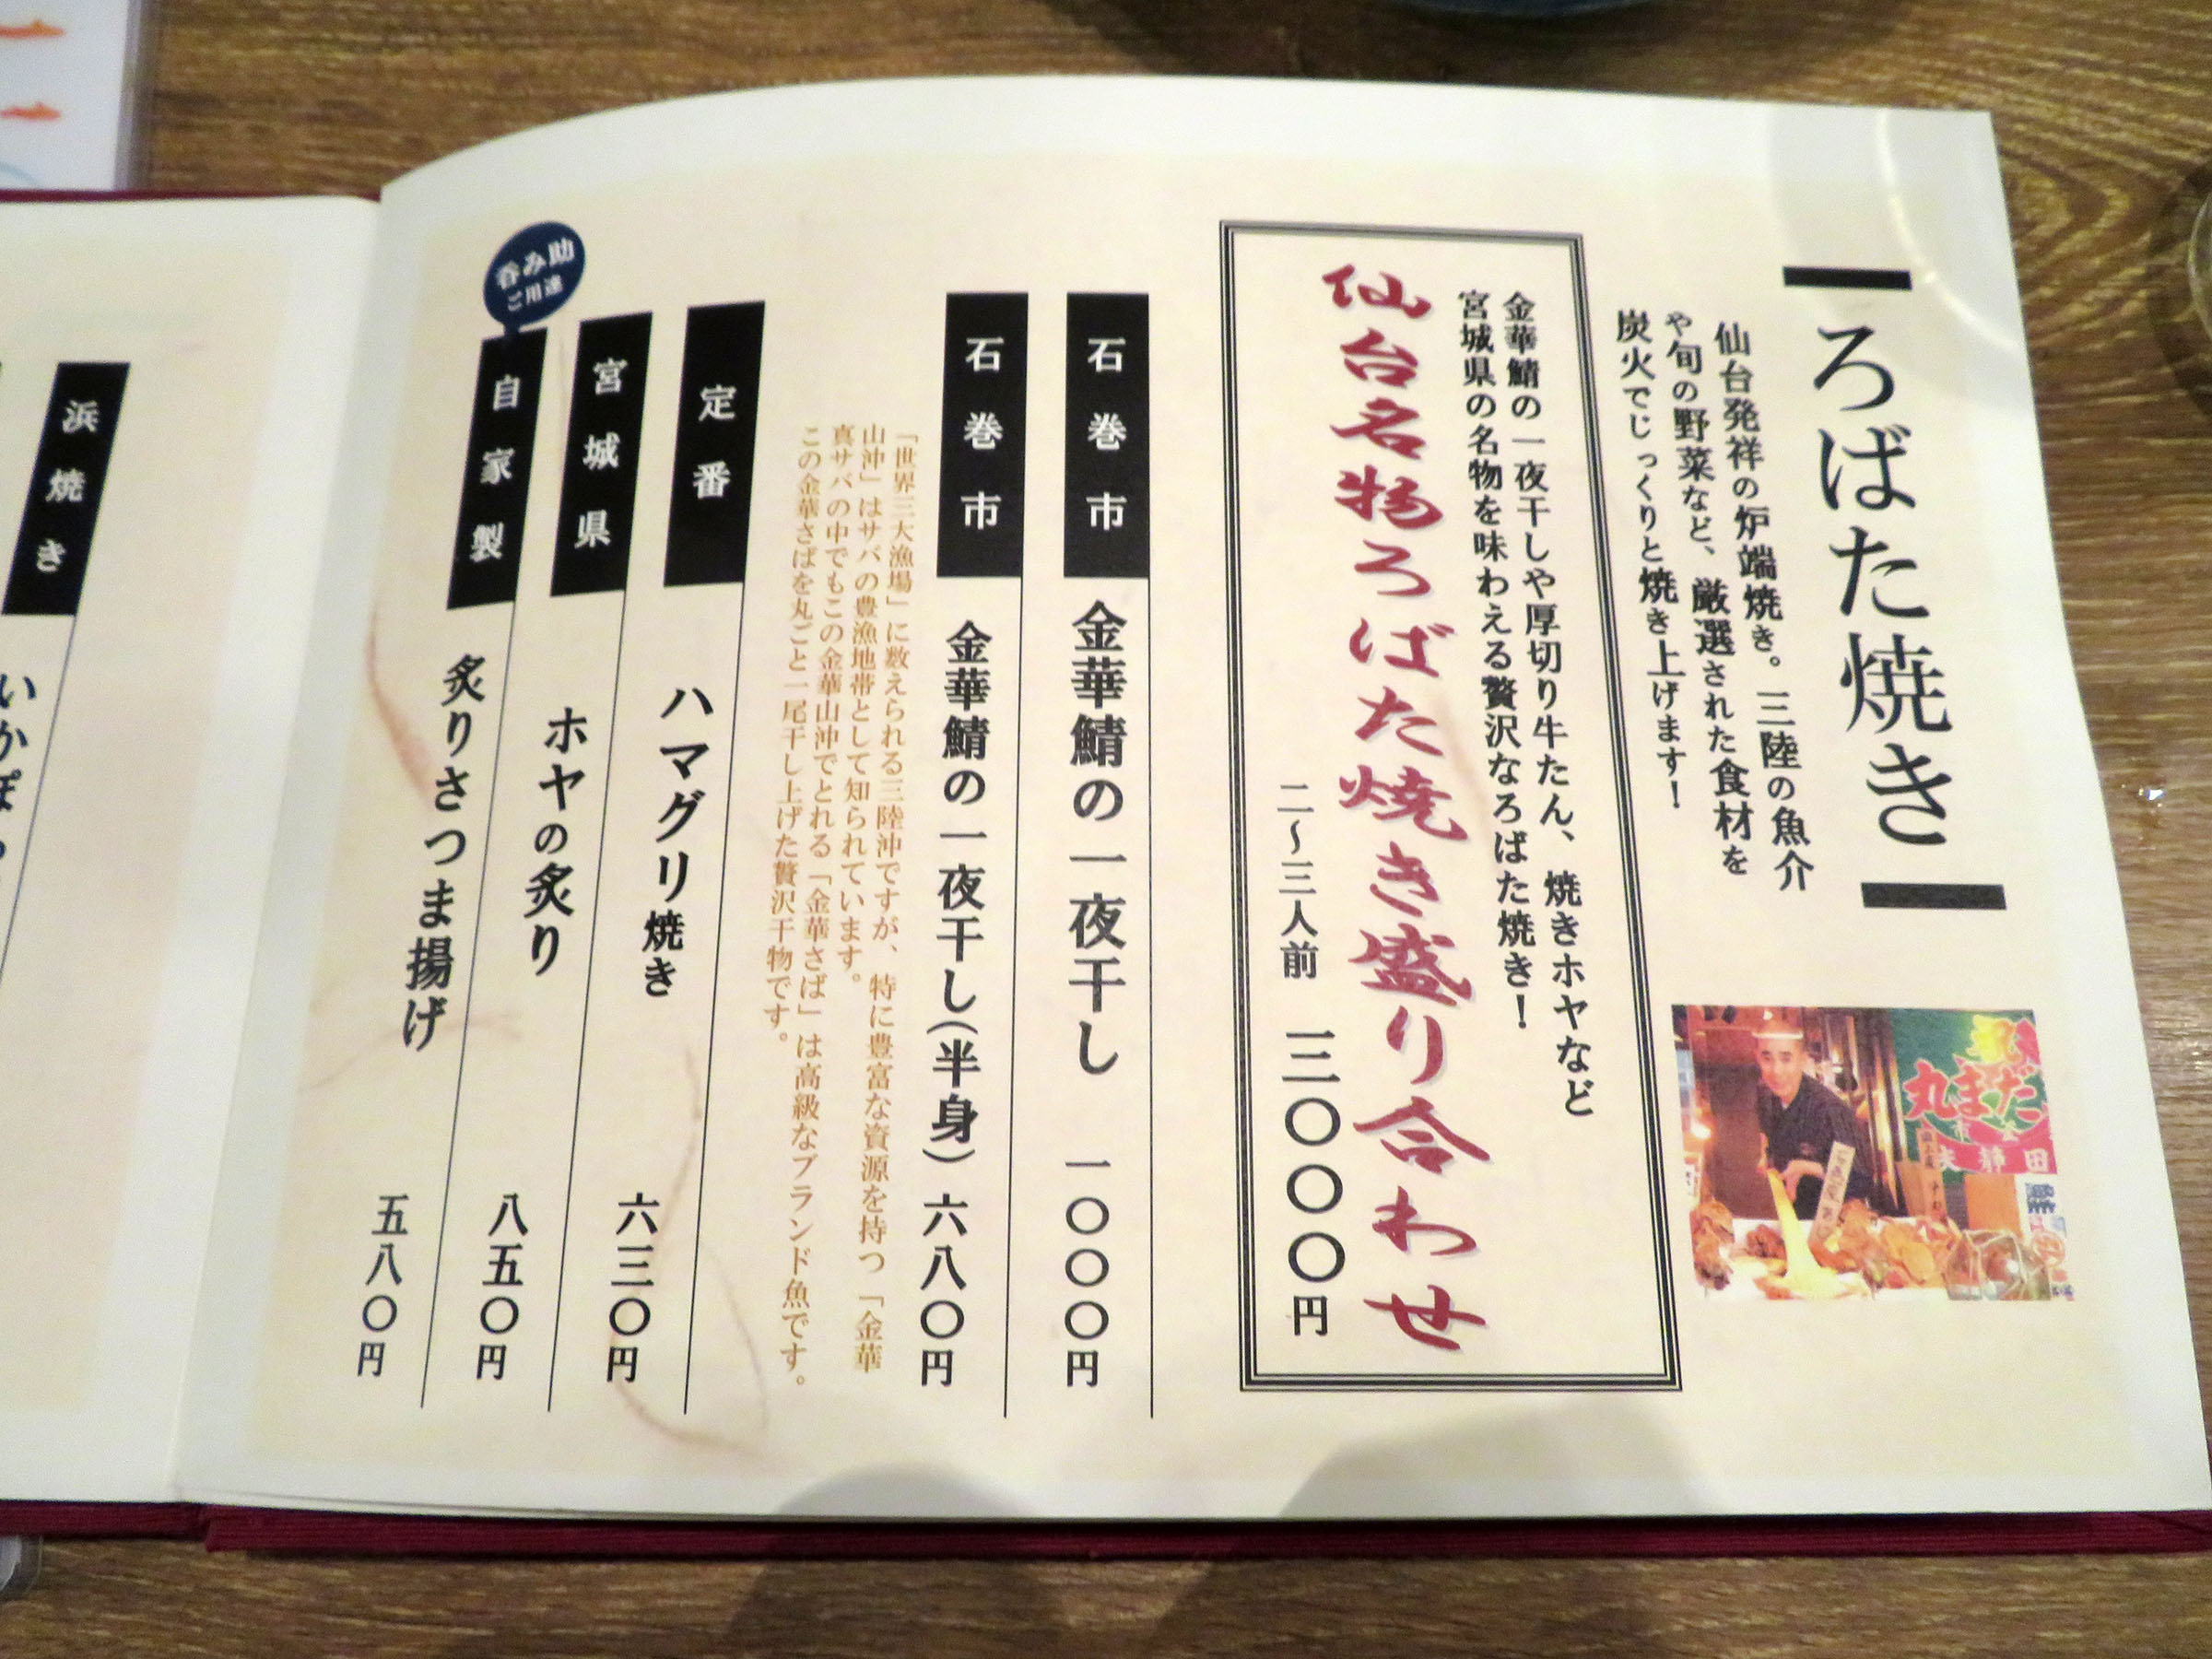 ろばた焼き
仙台発祥の炉端焼き。三陸の魚介
や旬の野菜など、厳選された食材を
炭火でじっくりと焼き上げます！
金華鯖の一夜干しや厚切り牛たん、焼きホヤなど
宮城県の名物を味わえる贅沢なろばた焼き！
仙台名物ろばた焼き盛り合わせ
二〜三人前 三〇〇〇円
石巻市 金華鯖の一夜干し 一〇〇〇円
石巻市 金華鯖の一夜干し(半身) 六八〇円
「世界三大漁場」に数えられる三陸沖ですが、特に豊富な資源を持つ「金華
山沖」はサバの豊漁地帯として知られています。
真サバの中でもこの金華山沖でとれる「金華さば」は高級なブランド魚です。
この金華さばを丸ごと一尾干し上げた贅沢干物です。
定番 ハマグリ焼き 六三〇円
宮城県 ホヤの炙り 八五〇円
呑み助
ご用達
自家製 炙りさつま揚げ 五八〇円
浜焼き
いかぽっ
丸まだ